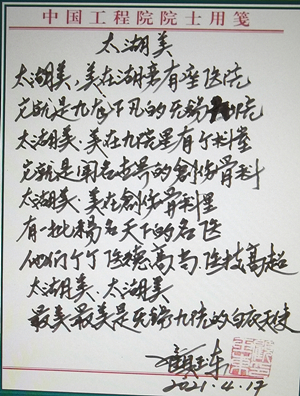 中国工程院院士用笺
太湖美
太湖美,美在湖旁有座医院
它就是九龙下凡的无锡九院
太湖美,美在九院里有个科室
它就是闻名古号的创伤骨科
太湖美,美在创伤骨科里
有一批扬名天下的名医
他们个个医德高尚、医技高超
太湖美、太湖美
最美最美是无锡九院的白衣天使
2021.4.17